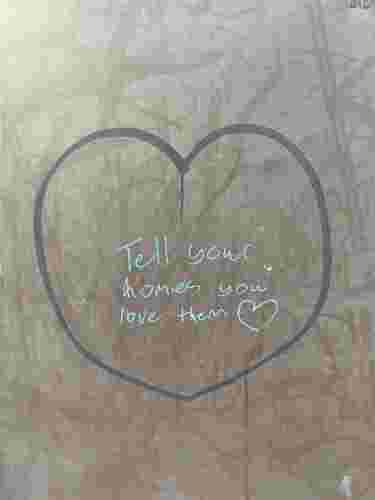 Tell your
homies you
love them